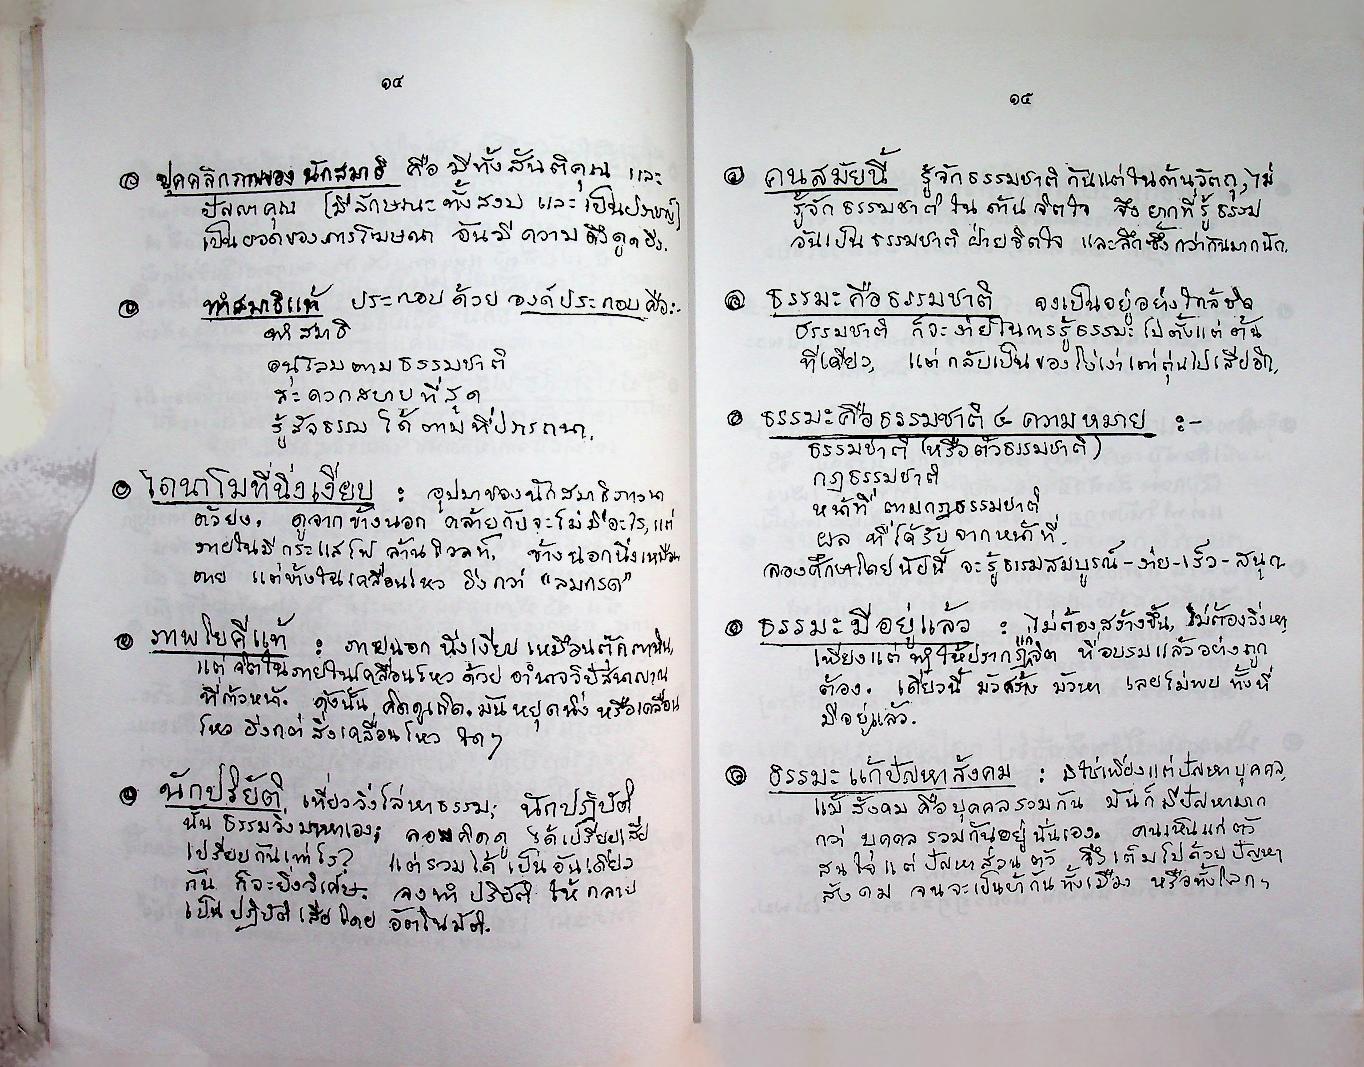 ๑๔
๏ บุคคลิกภาพของ นักสมาธิ คือ มีทั้งสันติคุณ และ
ปัญญาคุณ [มีลักษณะทั้งสงบ และ เป็นปราชญ์]
เป็นยอดของการโฆษณา อันมีความดึงดูดยิ่ง.
๏ ทำสมาธิแท้ ประกอบด้วย องค์ประกอบ คือ:-
ทำสมาธิ
อนุโลมตามธรรมชาติ
สะดวกสบายที่สุด
รู้สัจธรรม ได้ตามที่ปรารถนา.
๏ ไดนาโมที่นิ่งเงียบ : อุปมาของนักสมาธิภาวนา
ตัวยง. ดูจากข้างนอก คล้ายกับจะไม่มีอะไร, แต่
ภายในมีกระแสไฟ ล้านโวลท์. ข้างนอกนิ่งเหมือน
ตาย แต่ข้างในเคลื่อนไหว ยิ่งกว่า "ลมกรด"
๏ ภาพโยคีแท้ : ภายนอก นิ่งเงียบ เหมือนตุ๊กตาหิน,
แต่ จิตในภายในไหวเคลื่อนไหวด้วย อำนาจวิปัสสนาญาณ
ที่ก้าวหน้า. ดังนั้น คิดดูเถิด. มันหยุดนิ่ง หรือเคลื่อน
ไหว ยิ่งกว่า สิ่งเคลื่อนไหว ใดๆ
๏ นักปริยัติ เที่ยววิ่งไล่หาธรรม; นักปฏิบัติ
นั้น ธรรมวิ่งมาหาเอง; ลองคิดดู ได้เปรียบเสีย
เปรียบกันเท่าไร? แต่รวมได้เป็นอันเดียว
กัน ก็จะยิ่งวิเศษ. จงทำ ปริยัติ ให้กลาย
เป็น ปฏิบัติ เสียโดย อัตโนมัติ.
๑๕
๏ คนสมัยนี้ รู้จักธรรมชาติ กันแต่ในด้านวัตถุ, ไม่
รู้จักธรรมชาติ ใน ด้านจิตใจ จึงยากที่รู้ธรรม
อันเป็นธรรมชาติ ฝ่ายจิตใจ และลึกซึ้ง กว่ากันมากนัก.
๏ ธรรมะคือธรรมชาติ จงเป็นอยู่อย่างใกล้ชิด
ธรรมชาติ ก็จะง่ายในการรู้ธรรมะ ไปตั้งแต่ต้น
ทีเดียว, แต่กลับเป็นของโง่เง่าเต่าตุ่นไปเสียอีก.
๏ ธรรมะคือธรรมชาติ ๔ ความหมาย :-
ธรรมชาติ (หรือตัวธรรมชาติ)
กฎธรรมชาติ
หน้าที่ ตามกฎธรรมชาติ
ผล ที่ได้รับจากหน้าที่.
ลองศึกษาโดยนัยนี้ จะรู้ธรรมสมบูรณ์-ง่าย-เร็ว-สนุก
๏ ธรรมะมีอยู่แล้ว : ไม่ต้องสร้างขึ้น, ไม่ต้องวิ่งหา
เพียงแต่ ทำให้ปรากฏแก่จิต ที่อบรมแล้วอย่างถูก
ต้อง. เดี๋ยวนี้ มัวสร้าง มัวหา เลยไม่พบ ทั้งที่
มีอยู่แล้ว.
๏ ธรรมะแก้ปัญหาสังคม : มิใช่เพียงแต่ปัญหาบุคคล,
แม้ สังคม คือบุคคลรวมกัน มันก็มีปัญหามาก
กว่า บุคคล รวมกันอยู่นั่นเอง. คนเห็นแก่ตัว
สนใจแต่ ปัญหาส่วนตัว จึงเต็มไปด้วยปัญหา
สังคม จนจะเป็นบ้ากันทั้งเมือง หรือทั้งโลกๆ